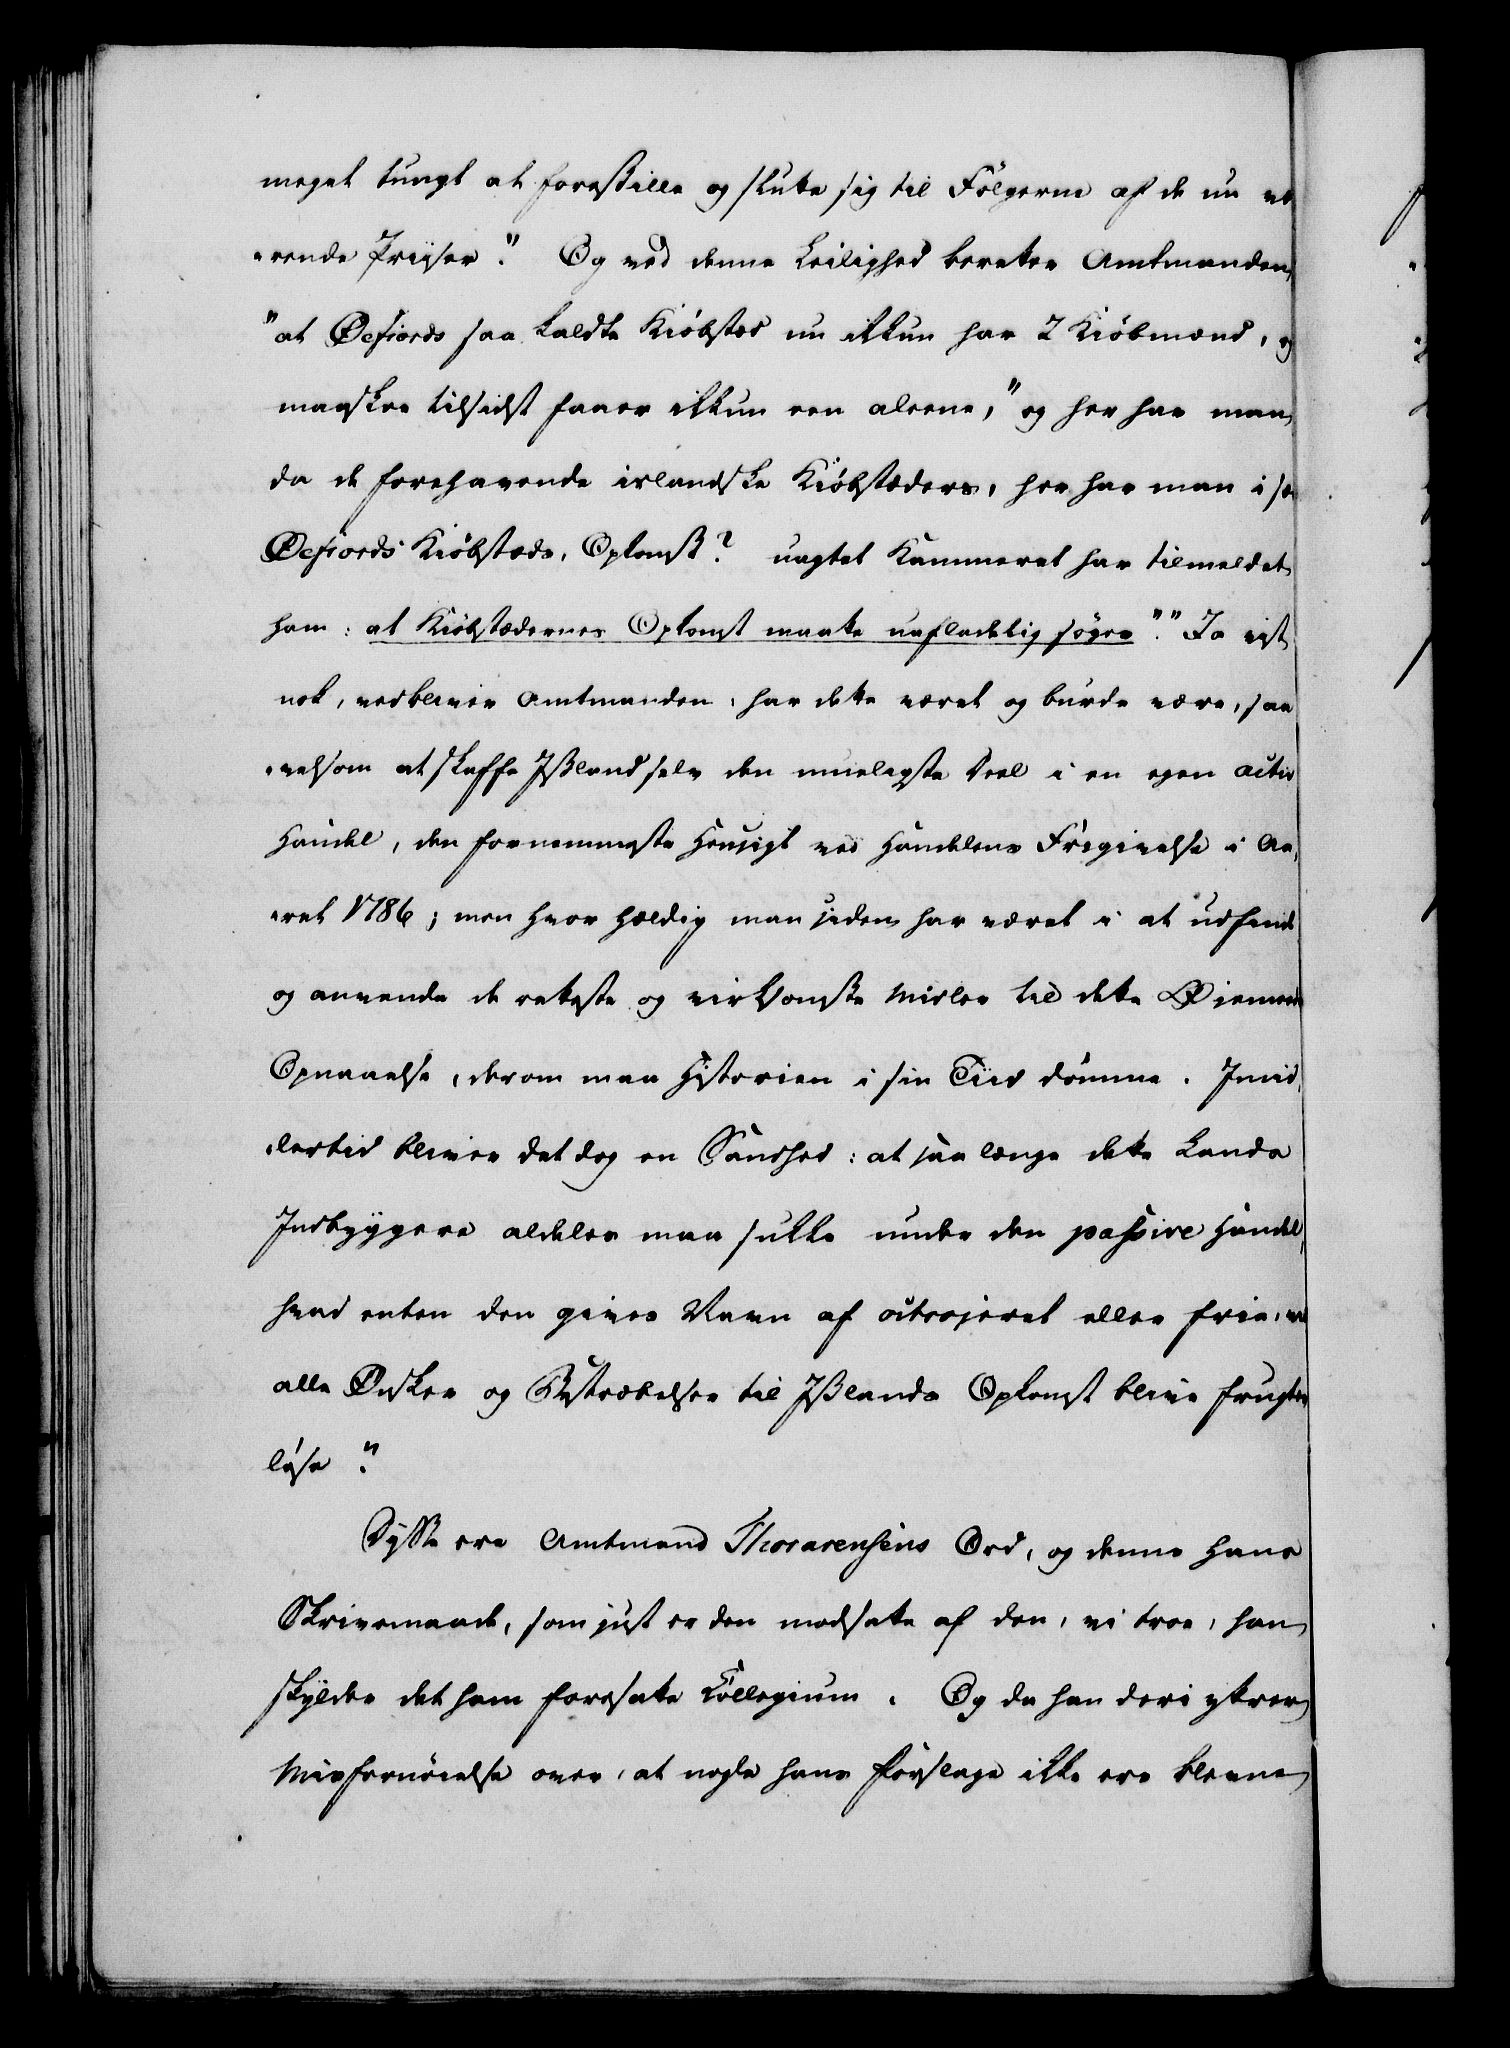 meget tungt at forestille og slutte sig til Fölgerne af de nu væ
„rende Priiser." Og ved denne Leilighed beretter Amtmanden,
"at Øefiords saa kaldte Kiöbsted nu ikkun har 2 Kiöbmænd, og
maaskee tilsidst faaer ikkun een aleene," og her har man
da de forehavende islandske Kiöbstæders, her har man i sær
Øefiords Kiöbstæds, Opkomst? uagtet Kammeret har tilmeldet
ham: at Kiöbstædernes Opkomst maatte uafladelig söges"." Ja vist
nok, vedbliver Amtmanden, har dette været og burde være, saa
„velsom at skaffe Jisland selv den mueligste Deel i en egen activ
Handel, den fornemmeste Hensigt ved Handelens Frigivelse i Aa„
„ret 1786; men hvor heldig man siden har været i at udfinde
og anvende de retteste og virksomste Midler til dette Øiemeds
Opnaaelse, derom maa Historien i sin Tiid dömme. Jmid„
„lertid bliver det dog en Sandhed: at saa længe dette Lands
Indbyggere aldeles maa sukke under den passive Handel,
hvad enten den gives Navn af octrojeret eller frie, vil
alle Ønsker og Bestræbelser til Jislands Opkomst blive frugtes
löse".
Disse ere Amtmand Thorarensens Ord, og denne hans
Skrivemaade, som just er den modsatte af den, vi troe, han
skylder det ham foresatte Collegium. Og da han deri yttrer
Misfornöielse over, at nogle hans Forslage ikke ere blevne